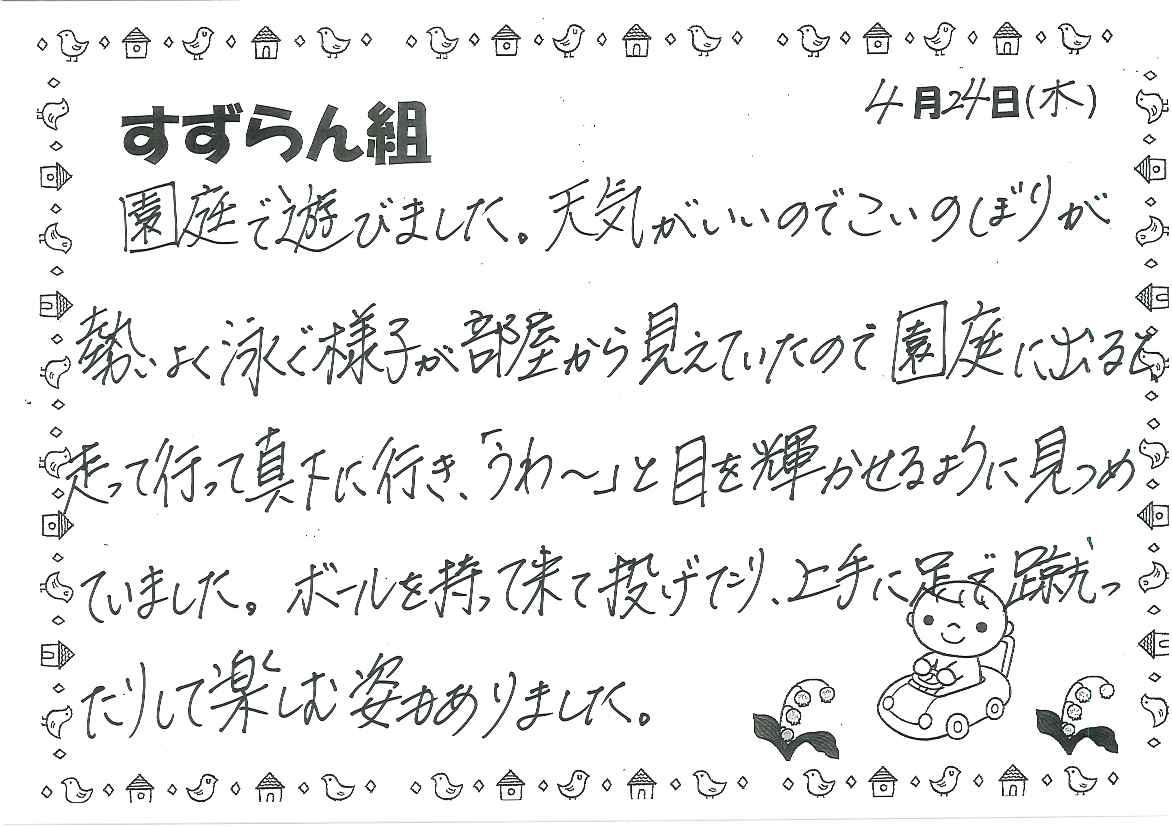 4月24日(木)
すずらん組
園庭で遊びました。天気がいいのでこいのぼりが
勢いよく泳ぐ様子が部屋から見えていたので園庭に出ると、
走って行って真下に行き、「うわ〜」と目を輝かせるように見つめ
ていました。ボールを持って来て投げたり、上手に足で蹴っ
たりして楽しむ姿もありました。